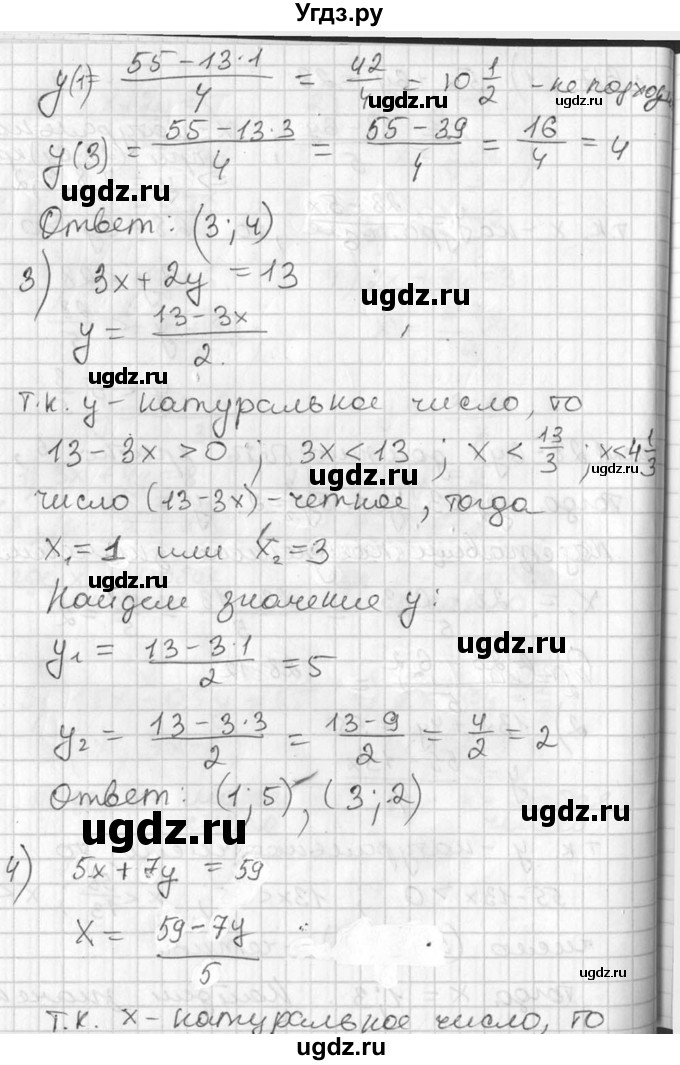 Угдз.ру
y(1)= (55-13·1)/4 = 42/4 = 10 1/2 - не подход
ugdz.ru
ugdz.ru
y(3) = (55-13·3)/4 = (55-39)/4 = 16/4 = 4
ugdz.ru
ugdz.ru
Ответ: (3; 4)
3) 3x+2y = 13
ugdz.ru
ugdz.ru
y = (13-3x)/2
ugdz.ru
т.к. y - натуральное число, то
ugdz.ru
13-3x > 0 ; 3x<13 ; x < 13/3 ; x<4 1/3
ugdz.ru
число (13-3x) - четное, тогда
x₁=1 или x₂=3
ugdz.ru
ugdz.ru
Найдем значение y:
y₁ = (13-3·1)/2 = 5
ugdz.ru
ugdz.ru
y₂ = (13-3·3)/2 = (13-9)/2 = 4/2 = 2
ugdz.ru
Ответ: (1; 5), (3; 2)
ugdz.ru
ugdz.ru
4) 5x+7y = 59
x = (59-7y)/5
ugdz.ru
т.к. x - натуральное число, то
ugdz.ru